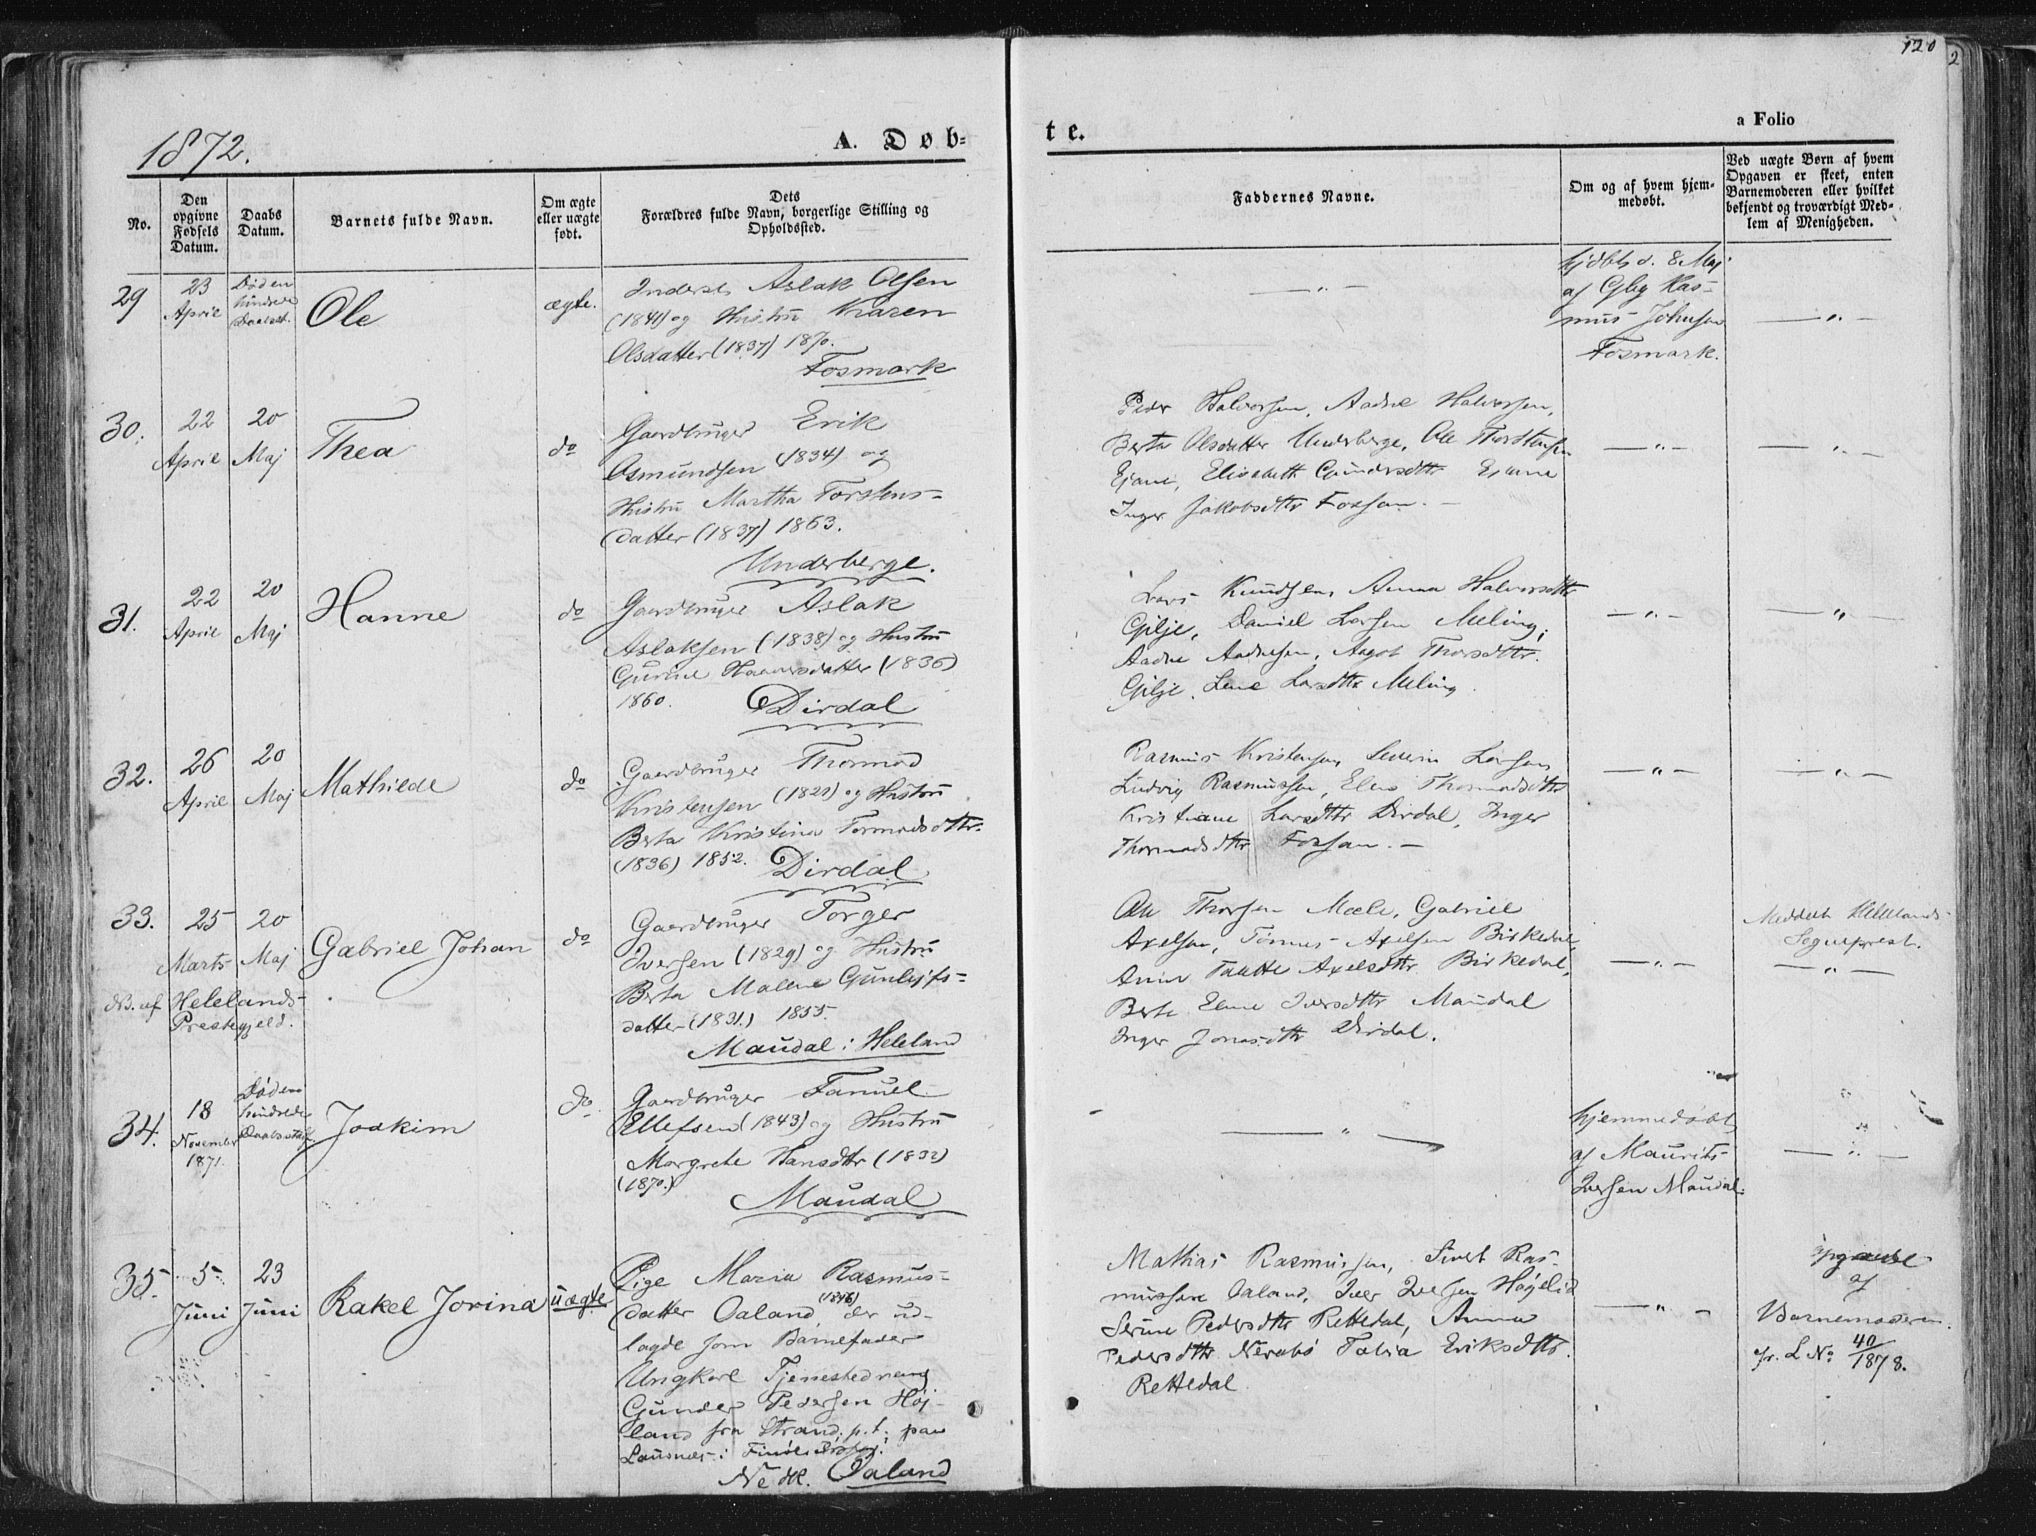 120
2
1872.
A. Døb-
te.
a Folio
No.
Den opgivne Fødsels Datum.
Daabs Datum.
Barnets fulde Navn.
Om ægte eller uægte født.
Dets Forældres fulde Navn, borgerlige Stilling og Opholdssted.
Faddernes Navne.
Om og af hvem hjemmedøbt.
Ved uægte Børn af hvem Opgaven er skeet, enten Barnemoderen eller hvilket bekjendt og troværdigt Medlem af Menigheden.
29
23
April
Død en
hindrede
Ole
ægte.
Inderst Aslak Olsen
(1841) og Hustru Karen
Olsdatter (1837) 1870.
Fosmark
hjdbt d. 8 Maj
af Ras-
mus Johnsen
Fosmark.
30.
22
April
20
Maj
Thea
do
Gaardbruger Erik
Osmundsen (1834) og
Hustru Martha Torstens-
datter (1837) 1863.
Underberge.
Peder Halvorsen, Aadne Halvorsen,
Berte Olsdatter Underberge, Ole Thorstensen
Ejane, Elisabeth Gundersdttr Ejane
Inger Jakobsdttr Fossan. -
31.
22
April
20
Maj
Hanne
do
Gaardbruger Aslak
Aslaksen (1838) og Hustru
Gurine Haaversdatter (1836)
1860.
Dirdal
Lars Knudsen, Anna Halvorsdttr
Gilje, Daniel Larsen Meling,
Aadne Aadnesen, Aagot Thorsdttr.
Gilje, Lene Larsdttr Meling.
32.
26
April
20
Maj
Mathilde
do
Gaardbruger Thormod
Kristensen (1822) og Hustru
Berta Kristina Tormodsdttr.
(1836) 1852.
Dirdal
Rasmus Kristensen, Severin Larsen,
Ludvig Rasmussen, Elen Thormodsdttr
Kristiane Larsdttr Dirdal, Inger
Thormodsdttr Fossan. -
33.
25
Marts
20
Maj
NB. af Helelands-
Prestegjeld.
Gabriel Johan
do
Gaardbruger Torger
Iversen (1829) og Hustru
Berta Malene Gunleifs-
datter (1831.) 1855.
Maudal i Heleland
Ole Thorsen Mæle, Gabriel
Axelsen, Tønnes Axelsen Birkedal,
Axelsdttr Birkedal,
Berte Elene Iversdttr Maudal
Inger Jonasdttr Dirdal.
Meddelt Helelands
Sogneprest.
34.
18
November
1871.
Død en
hindrede
Joakim
do.
Gaardbruger Fanuel
Ellefsen (1843) og Hustru
Margrete Hansdttr (1832)
(1870.)
Maudal
hjemmedøbt
af Maurits
Iversen Maudal.
35.
5
Juni
23
Juni
Rakel Jorina
uægte
Pige Maria Rasmus-
datter Oaland (1846), der ud-
lagde som Barnefader
Ungkarl Tjenestedreng
Gunder Pedersen Høj-
land fra Strand, p.t. paa
Lausnes i
Nedk. Oaland
Mathias Rasmussen, Sivert Ras-
mussen Oaland, Iver Iversen Høgelid
Serine Pedersdttr Rettedal, Anna
Pedersdttr Nerabø Tabia Eriksdttr.
Rettedal
opgavet
af
Barnemoderen.
cfr. L No 40/1878.